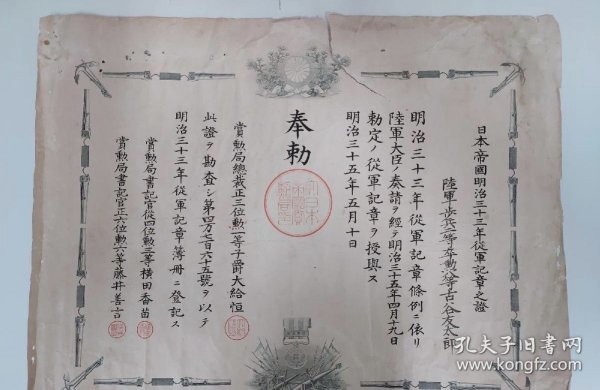 日本帝國明治三十三年從軍記章之證
陸軍歩兵一等卒勲八等古谷友太郎
明治三十三年從軍記章條例ニ依リ
陸軍大臣ノ奏請ヲ經テ明治三十五年四月十九日
勅定ノ從軍記章ヲ授與ス
明治三十五年五月十日
奉勅
賞勲局總裁正三位勲一等子爵大給恒
此證ヲ勘査シ第四万七百六十五號ヲ以テ
明治三十三年從軍記章簿冊ニ登記ス
賞勲局書記官從四位勲三等横田香苗
賞勲局書記官正六位勲六等藤井善言
孔夫子旧书网
kongfz.com